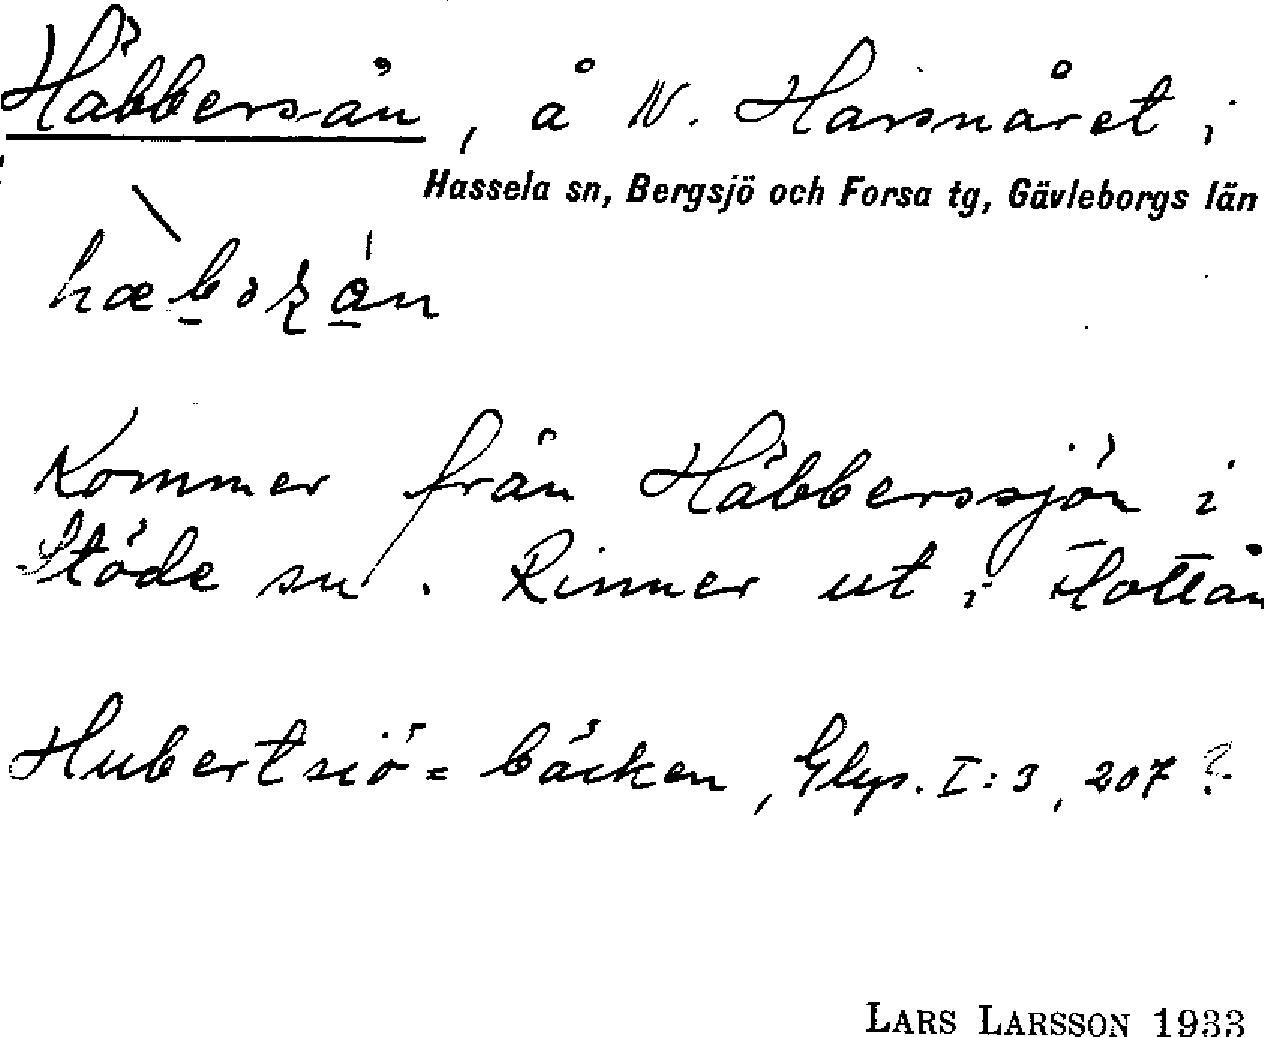 Häbbersån, å N. Harsnåret i
Hassela sn, Bergsjö och Forsa tg, Gävleborgs län
Kommer från Häbberssjön i
Stöde sn. Rinner ut i Flottån
Hubertsjö-bäcken, Glys. I:3, 207?
LARS LARSSON 1933